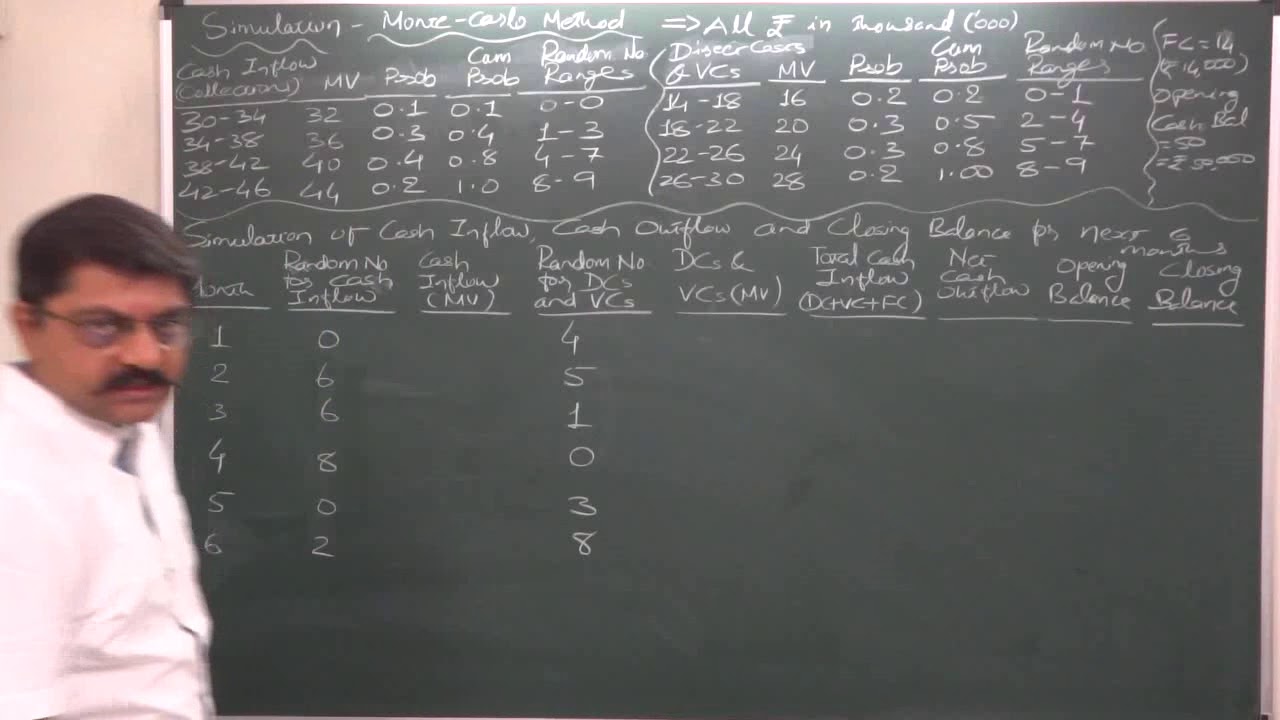 Simulation - Monte-Carlo Method ⇒ All ₹ in thousand ('000)
Cash Inflow (Collections) MV Prob Cum Prob Random No. Ranges
30-34 32 0.1 0.1 0-0
34-38 36 0.3 0.4 1-3
38-42 40 0.4 0.8 4-7
42-46 44 0.2 1.0 8-9
Direct Costs & VCs MV Prob Cum Prob Random No. Ranges
14-18 16 0.2 0.2 0-1
18-22 20 0.3 0.5 2-4
22-26 24 0.3 0.8 5-7
26-30 28 0.2 1.00 8-9
FC = 14
(₹ 14,000)
Opening
Cash Bal
= 50
= ₹ 50,000
Simulation of Cash Inflow, Cash Outflow and Closing Balance for next 6 months
Month Random No for Cash Inflow Cash Inflow (MV) Random No for DCs and VCs DCs & VCs (MV) Total Cash Inflow (DC+VC+FC) Net Cash Outflow Opening Balance Closing Balance
1 0 4
2 6 5
3 6 1
4 8 0
5 0 3
6 2 8